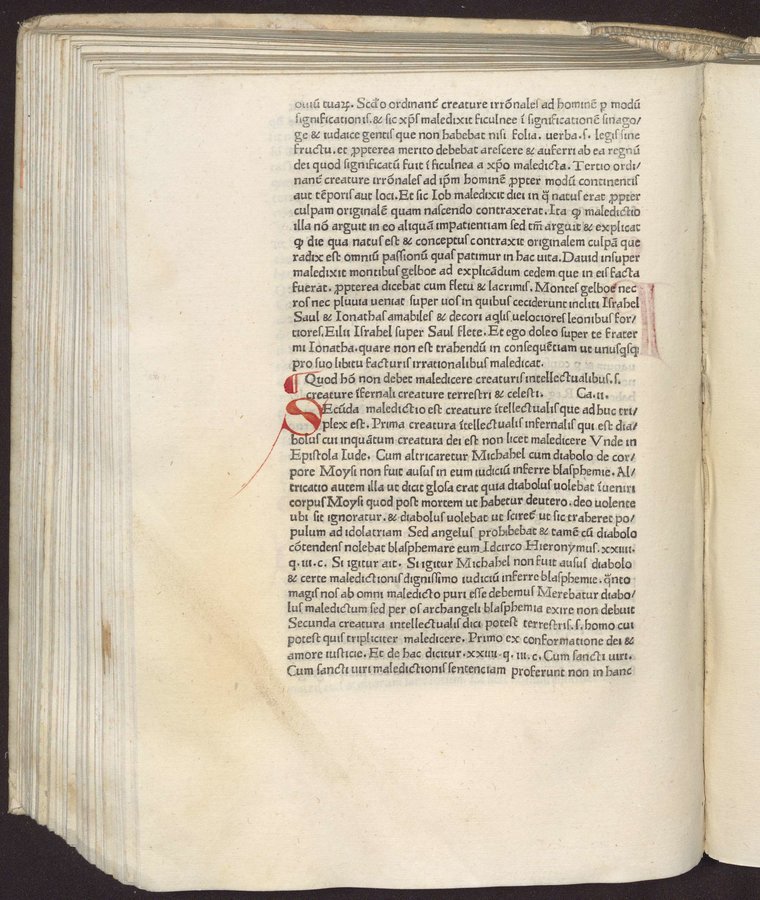 ouiū tuaꝝ. Scd̄o ordinant̄ creature irrōnales ad hominē p modū
significationis. & sic xp̄s maledixit ficulnee ī significationē sinago/
ge & iudaice gentis que non habebat nisi folia. uerba .s. legis sine
fructu. et ꝓpterea merito debebat arescere & auferri ab ea regnū
dei quod significatū fuit ī ficulnea a xp̄o maledicta. Tertio ordi/
nant̄ creature irrōnales ad ip̄m hominē ꝓpter modū continentis
aut tēporis aut loci. Et sic Iob maledixit diei in q̄ natus erat ꝓpter
culpam originalē quam nascendo contraxerat. Ita ꝙ maledictio
illa nō arguit in eo aliquā impatientiam sed tm̄ arguit & explicat
ꝙ die qua natus est & conceptus contraxit originalem culpā que
radix est omniū passionū quas patimur in hac uita. Dauid insuper
maledixit montibus gelboe ad explicādum cedem que in eis facta
fuerat. ꝓpterea dicebat cum fletu & lacrimis. Montes gelboe nec
ros nec pluuia ueniat super uos in quibus ceciderunt incliti Israhel
Saul & Ionathas amabiles & decori aq̄lis uelociores leonibus for/
tiores. Filii Israhel super Saul flete. Et ego doleo super te frater
mi Ionatha. quare non est trahendū in consequētiam ut unusqsꝗ
pro suo libitu facturis irrationalibus maledicat.
¶ Quod hō non debet maledicere creaturis intellectualibus .s.
creature īfernali creature terrestri & celesti. Ca. ii.
SEcūda maledictio est creature ītellectualis que ad huc tri/
plex est. Prima creatura ītellectualis infernalis qui est dia/
bolus cui inquātum creatura dei est non licet maledicere Vnde in
Epistola Iude. Cum altricaretur Michahel cum diabolo de cor/
pore Moysi non fuit ausus in eum iudiciū inferre blasphemie. Al/
tricatio autem illa ut dicit glosa erat quia diabolus uolebat īueniri
corpus Moysi quod post mortem ut habetur deutero. deo uolente
ubi sit ignoratur. & diabolus uolebat ut sciret̄ ut sic traheret po/
pulum ad idolatriam Sed angelus prohibebat & tamē cū diabolo
cōtendens nolebat blasphemare eum Idcirco Hieronymus. xxiiii.
q. iii. c. Si igitur ait. Si igitur Michahel non fuit ausus diabolo
& certe maledictionis dignissimo iudiciū inferre blasphemie. q̄nto
magis nos ab omni maledicto puri esse debemus Merebatur diabo/
lus maledictum sed per os archangeli blasphemia exire non debuit
Secunda creatura intellectualis dici potest terrestris. s. homo cui
potest quis tripliciter maledicere. Primo ex conformatione dei &
amore iusticie. Et de hac dicitur. xxiiii. q. iii. c. Cum sancti uiri.
Cum sancti uiri maledictionis sentenciam proferunt non in hanc